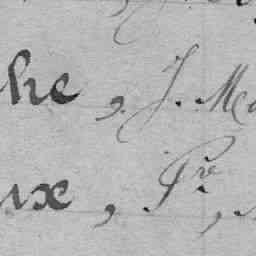 he, J. Ma
ux, Pre,